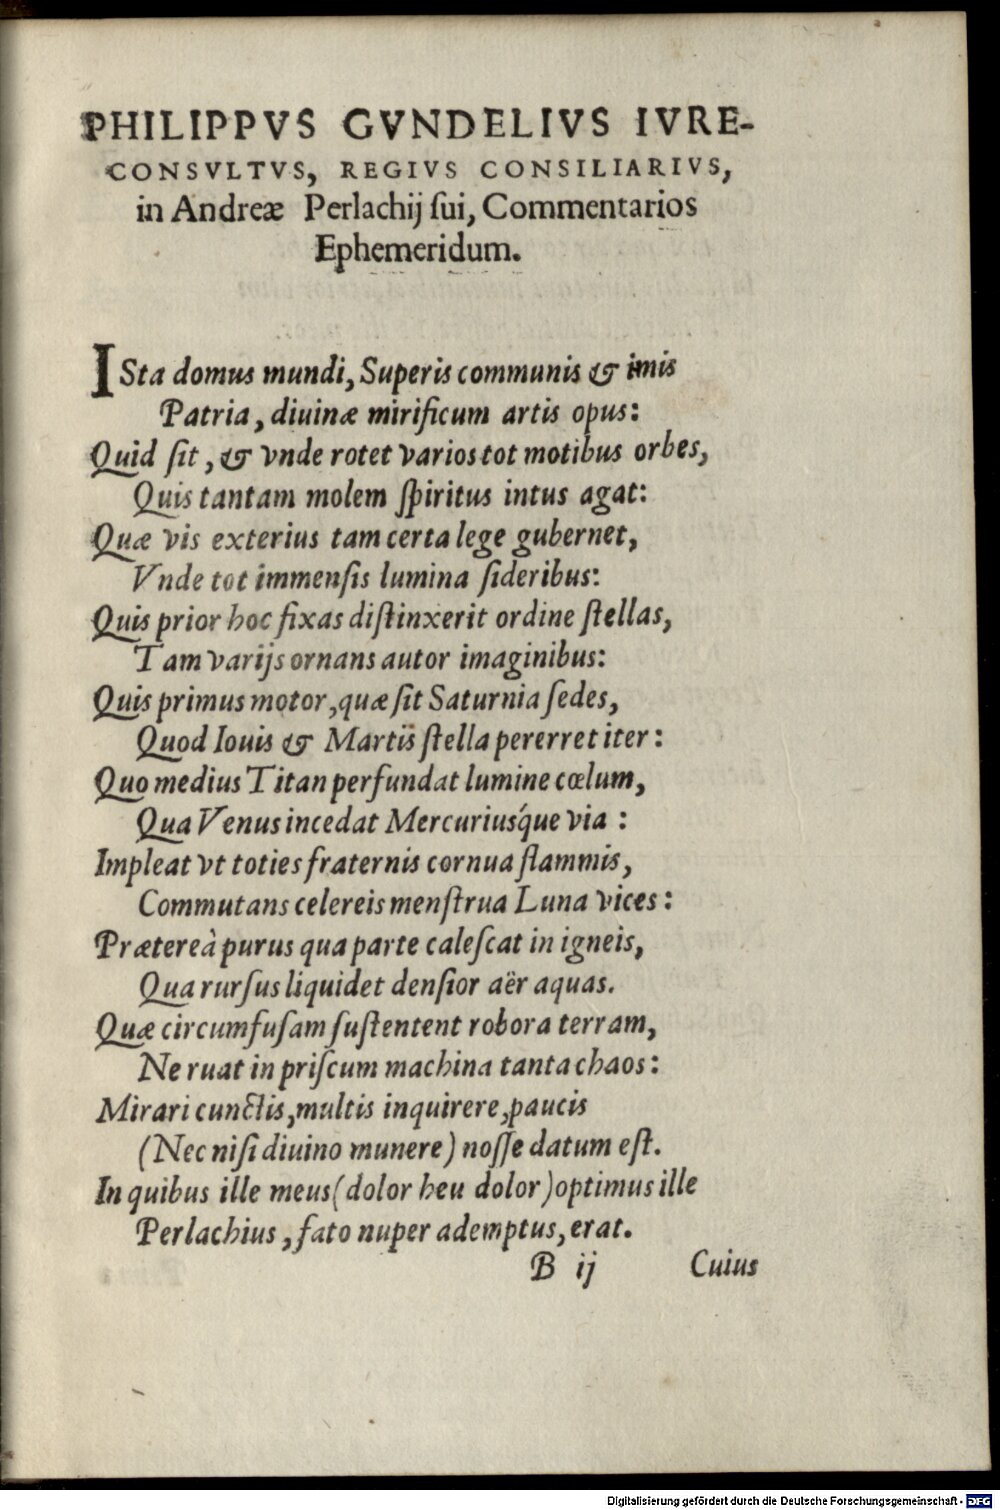 PHILIPPVS GVNDELIVS IVRE-
CONSVLTVS, REGIVS CONSILIARIVS,
in Andreæ Perlachij ſui, Commentarios
Ephemeridum.
ISta domus mundi, Superis communis & imis
Patria, diuinæ mirificum artis opus:
Quid ſit, & vnde rotet varios tot motibus orbes,
Quis tantam molem ſpiritus intus agat:
Quæ vis exterius tam certa lege gubernet,
Vnde tot immenſis lumina ſideribus:
Quis prior hoc fixas diſtinxerit ordine ſtellas,
Tam varijs ornans autor imaginibus:
Quis primus motor, quæ ſit Saturnia ſedes,
Quod Iouis & Martis ſtella pererret iter:
Quo medius Titan perfundat lumine cœlum,
Qua Venus incedat Mercuriusq́ue via :
Impleat vt toties fraternis cornua flammis,
Commutans celereis menſtrua Luna vices:
Prætereà purus qua parte caleſcat in igneis,
Qua rurſus liquidet denſior aër aquas.
Quæ circumfuſam ſuſtentent robora terram,
Ne ruat in priſcum machina tanta chaos:
Mirari cunctis, multis inquirere, paucis
(Nec niſi diuino munere) noſſe datum eſt.
In quibus ille meus (dolor heu dolor) optimus ille
Perlachius, fato nuper ademptus, erat.
B ij Cuius
Digitalisierung gefördert durch die Deutsche Forschungsgemeinschaft - DFG